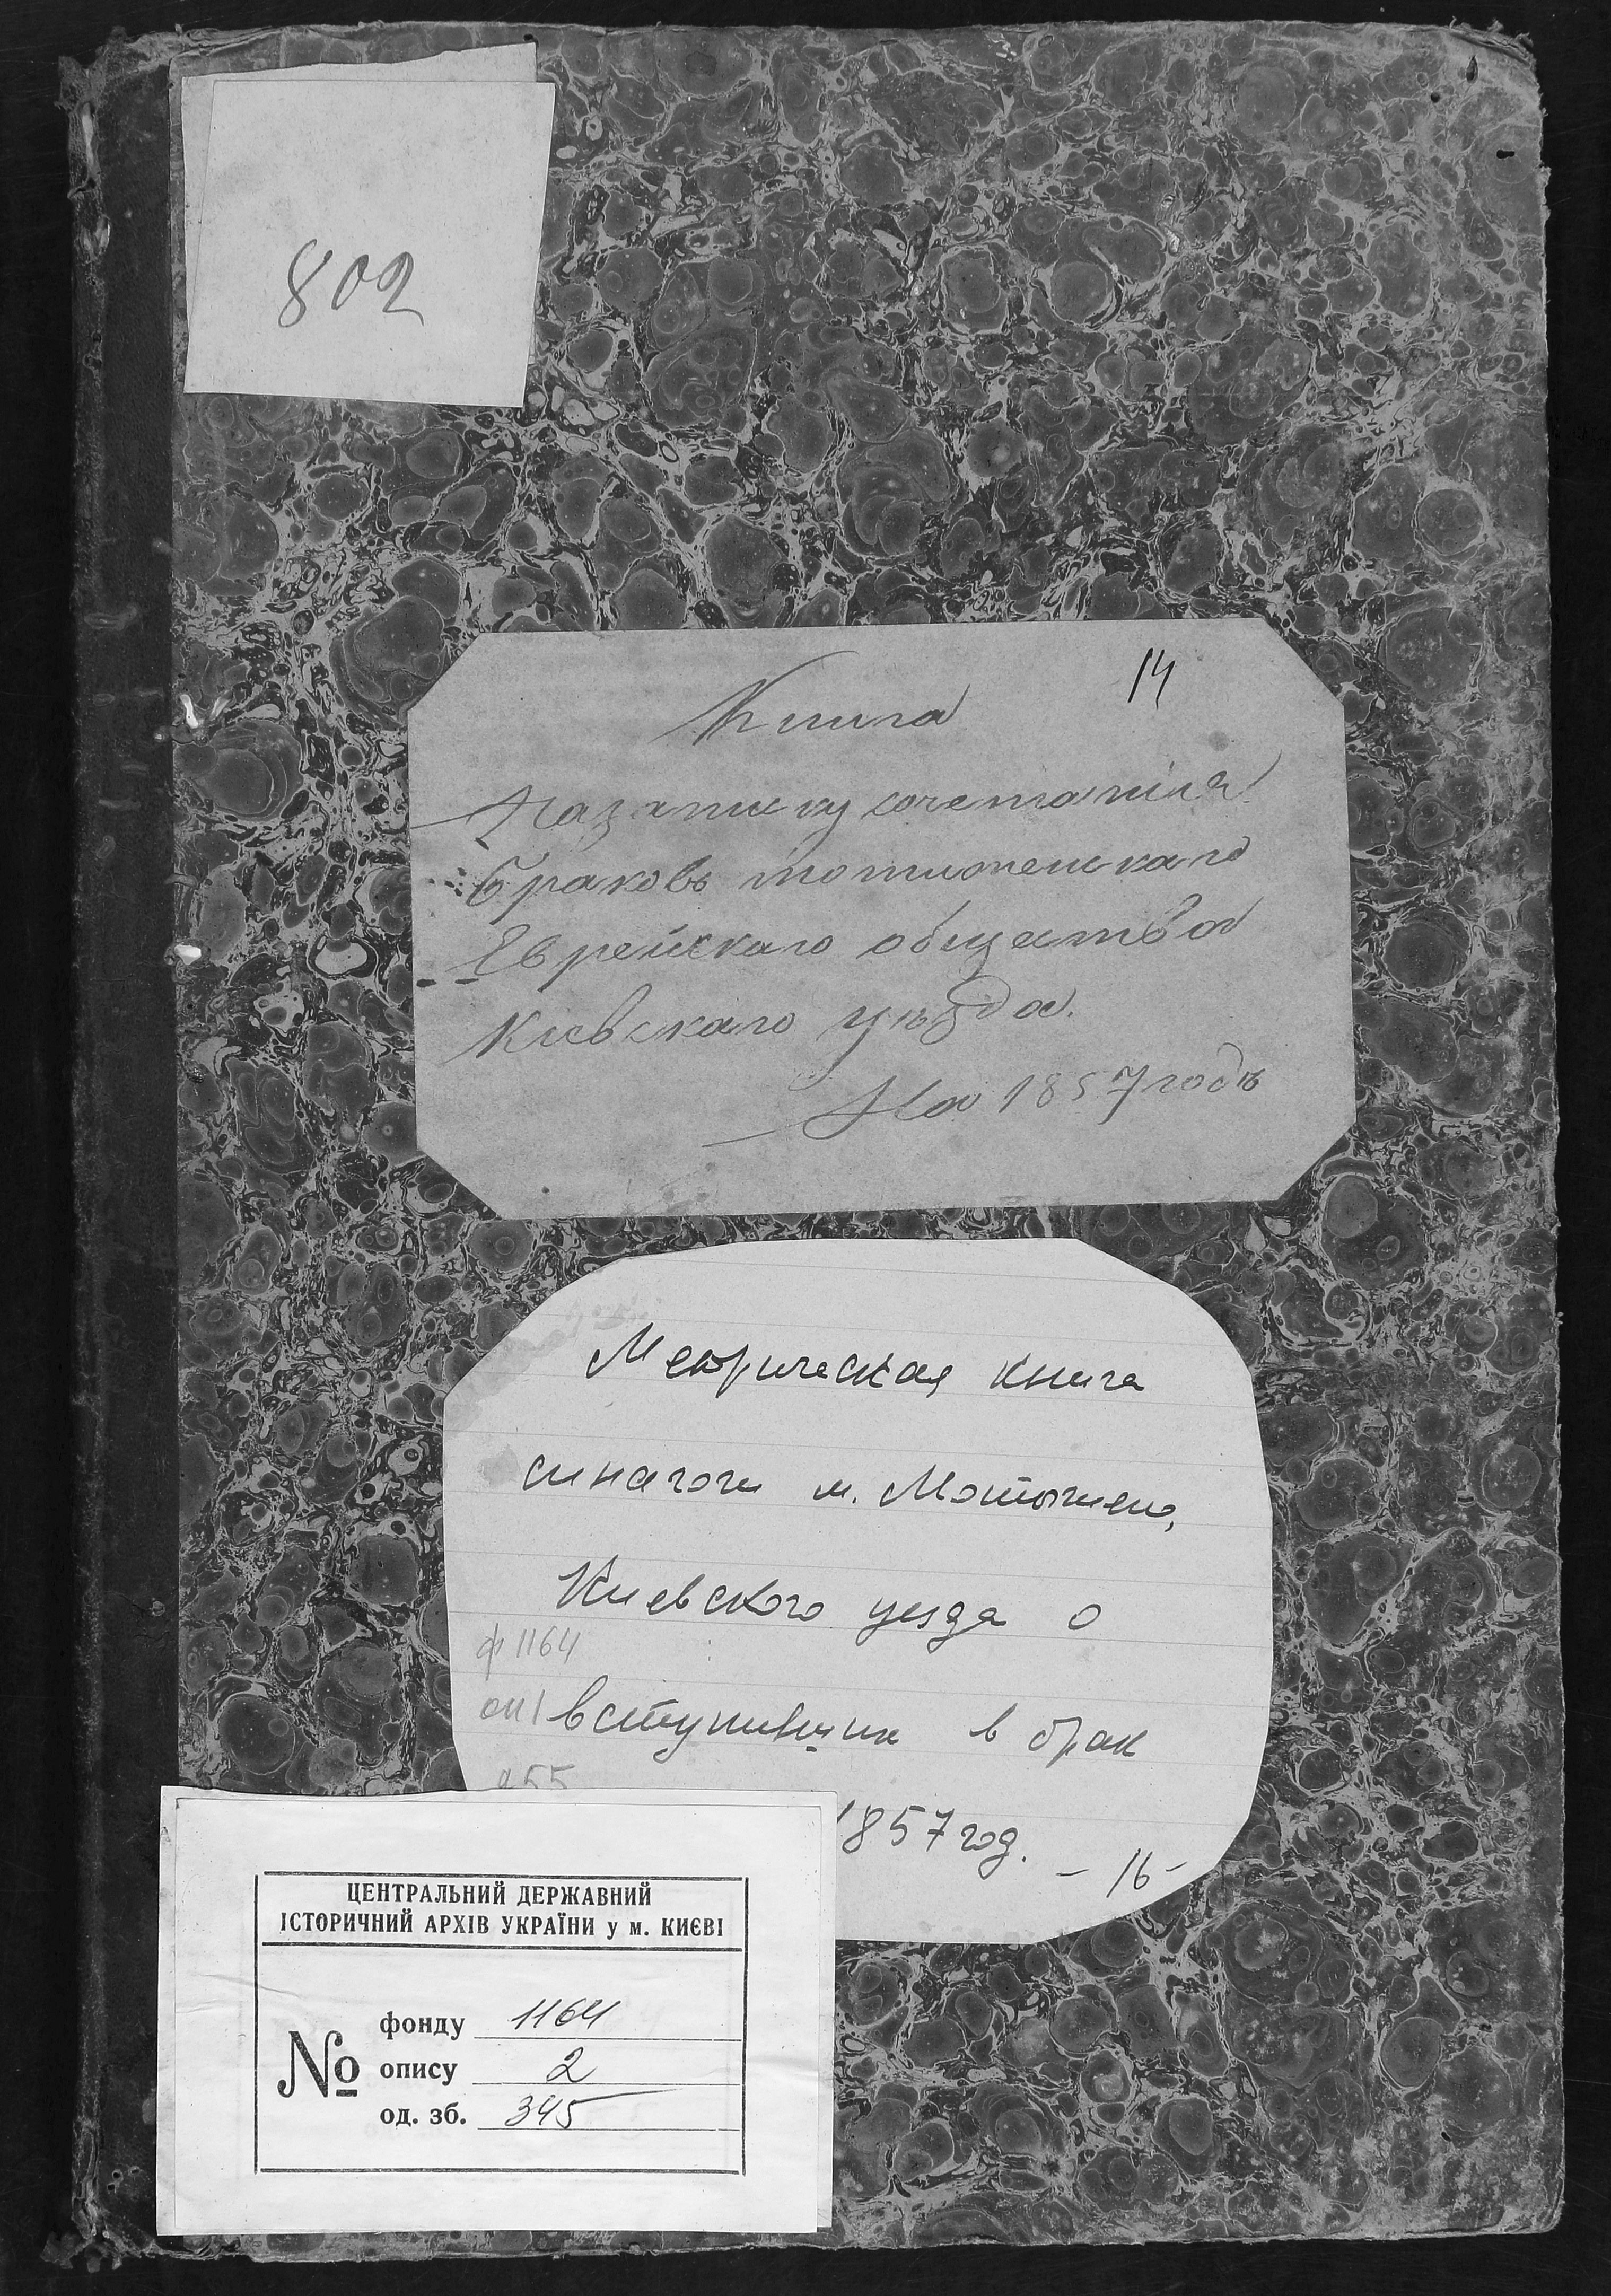 802
14
Книга
На записку сочетанія
браковъ мотиженскаго
Еврейскаго общества
Кіевскаго уѣзда.
На 1857 годъ
Метрическая книга
синагоги м. Мотыжено,
Киевского уезда о
ф 1164
оп 1 вступивших в брак
1857 год.
- 16 -
ЦЕНТРАЛЬНИЙ ДЕРЖАВНИЙ
ІСТОРИЧНИЙ АРХІВ УКРАЇНИ у м. КИЄВІ
№
фонду 1164
опису 2
од. зб. 345